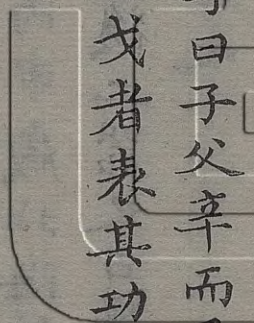 曰子父辛而
戈者表其功